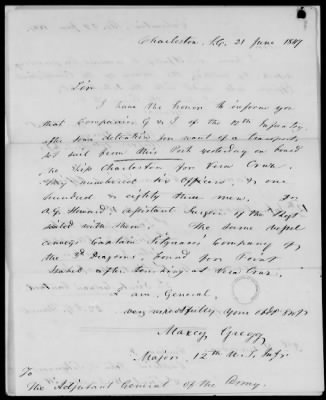 Charleston, S.C. 21 June 1847
Sir
I have the honor to inform you
that Companies G & I of the 12th Infantry,
after some detention for want of a transport,
set sail from this Port yesterday on board
the Ship Charleston for Vera Cruz.
They numbered six Officers, & one
hundred & eighty three men. Dr
Howard, assistant Surgeon of the Regt
sailed with them. The same vessel
carries Captain Company of
the 3d Dragoons, bound for Point
Isabel, after touching at Vera Cruz.
I am, General,
very respectfully Your Obdt Servt
Maxcy Gregg
Major 12th U.S. Infy.
To
The Adjutant General of the Army.